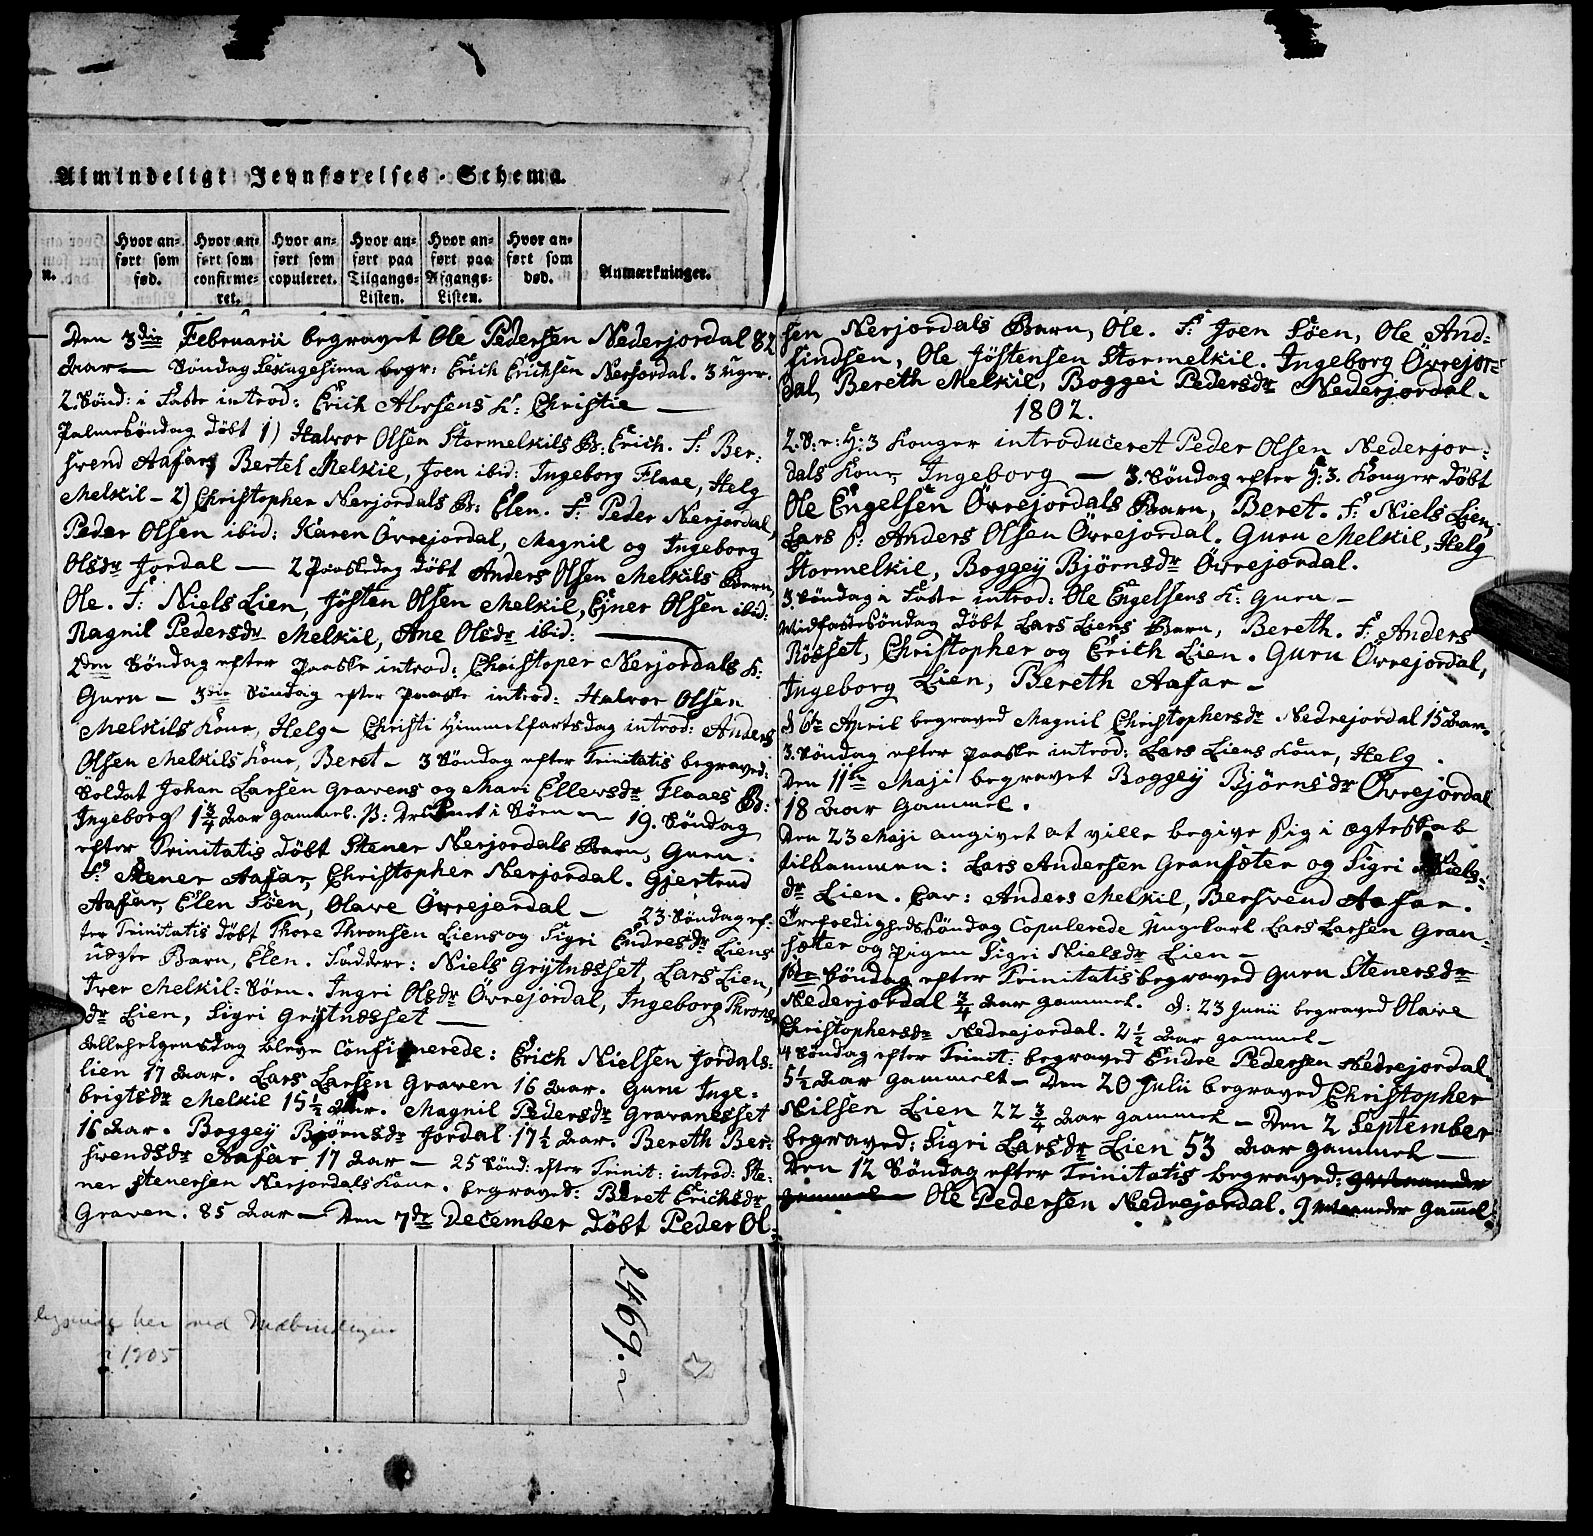 Almindeligt Jevnførelses-Schema.
n.
Hvor an-
ført som
fød.
Hvor an-
ført som
confirme-
ret.
Hvor an-
ført som
copuleret.
Hvor an-
ført paa
Tilgangs-
Listen.
Hvor an-
ført paa
Afgangs-
Listen.
Hvor an-
ført som
død.
Anmærkninger.
Den 3die Februarii begravet Ole Pedersen Nederjordal 82
Aar — Søndag Sexagesima begr: Erich Erichsen Nerjordal. 3 uger.
2. Sønd: i Faste introd: Erich K: Christie —
Palmesöndag döbt 1) Halvor Olsen Stormelkils B: Erich. F: Ber-
svend Aafar, Bertel Melkil, Joen ibid: Ingeborg Flaae, Helg
Melkil – 2) Christopher Nerjordals B: Elen. F: Peder Nerjordal,
Peder Olsen ibid: Karen Övrejordal, Magnil og Ingeborg
Olsdr Jordal — 2 Paaskedag döbt Anders Olsen Melkils Barn,
Ole. F: Niels Lien, Jösten Olsen Melkil, Ejner Olsen ibid:
Ragnil Pedersdr Melkil, Ane Olsdr ibid: —
2den Söndag efter Paaske introd: Christoper Nerjordals K:
Guru — 3die Söndag efter Paaske introd: Halvor Olsen
Melkils Kone, Helg – Christi Himmelfartsdag introd: Anders
Olsen Melkils Kone, Beret – 3 Söndag efter Trinitatis begraved:
Soldat Johan Larsen Gravens og Mari Ellevsdr Flaaes B:
Ingeborg 1 3/4 Aar gammel. P: Druknet i Söen — 19. Söndag
efter Trinitatis döbt Stener Nerjordals Barn, Guru.
F: Stener Aafar, Christopher Nerjordal. Gjertrud
Aafar, Elen Söen, Olave Övrejordal – 23 Söndag ef-
ter Trinitatis döbt Thore Thronsen Liens og Sigri Endresdr Liens
uægte Barn, Elen. Faddere: Niels Grytnæsset, Lars Lien,
Iver Melkil-Söen. Ingri Olsdr Övrejordal, Ingeborg Throns-
dr Lien, Sigri Grytnæsset —
Allehelgensdag bleve Confirmerede: Erich Nielsen Jordals-
lien 17 Aar. Lars Larsen Graven 16 Aar. Guru Inge-
brigtsdr Melkil 15 1/2 Aar. Magnil Pedersdr Gravanesset
16 Aar. Boggey Bjørnsdr Jordal 17 1/2 Aar. Bereth Ber-
svendsdr Aafar 17 Aar — 25 Sönd: efter Trinit: introd: Ste-
ner Stenersen Nerjordals Kone. begraved: Beret Erichsdr
Graven. 85 Aar — Den 7de December döbt Peder Ol-
her ved Indbindingen
i 1905
2469.
sen Nerjordals Barn, Ole. F: Joen Söen, Ole And-
findsen, Ole Jöstensen Stormelkil. Ingeborg Övrejor-
dal, Bereth Melkil, Boggei Pedersdr Nederjordal.
1802.
2. S: e: H: 3 Konger introduceret Peder Olsen Nederjor-
dals Kone, Ingeborg — 3. Söndag efter H. 3. Konger döbt
Ole Engelsen Övrejordals Barn, Beret. F: Niels Lien,
Lars ibid: Anders Olsen Övrejordal. Guru Melkil, Helg
Stormelkil, Boggey Bjørnsdr Övrejordal.
3. Söndag i Faste introd: Ole Engelsens K: Guru –
Midfastesöndag döbt Lars Liens Barn, Bereth. F: Anders
Rösset, Christopher og Erich Lien. Guru Övrejordal,
Ingeborg Lien, Bereth Aafar –
d 6te April begraved Magnil Christophersdr Nedrejordal 15 Aar.
3. Söndag efter Paaske introd: Lars Liens Kone, Helg.
Den 11te Maji begravet Boggey Bjørnsdr Övrejordal
18 Aar gammel.
Den 23 Maji angivet at ville begive sig i Ægteskab
tilsammen: Lars Andersen Gransæter og Sigri Niels-
dr Lien. Cav: Anders Melkil, Bersvend Aafar.
Trefoldighedssöndag Copulerede Ungekarl Lars Larsen Gran-
sæter og Pigen Sigri Nielsdr Lien –
1ste Söndag efter Trinitatis begraved Guru Stenersdr
Nederjordal 3/4 Aar gammel. d: 23 Junii begraved Olave
Christophersdr Nedrejordal. 2 1/2 Aar gammel –
4 Söndag efter Trinit: begraved Endre Pedersen Nedrejordal
5 1/2 Aar gammelt – Den 20 Julii begraved Christopher
Nilsen Lien 22 3/4 Aar gammel – Den 2 September
begraved: Sigri Larsdr Lien 53 Aar gammel —
Den 12 Söndag efter Trinitatis begraved:
gammel Ole Pedersen Nedrejordal. 9 Maaneder gammel.